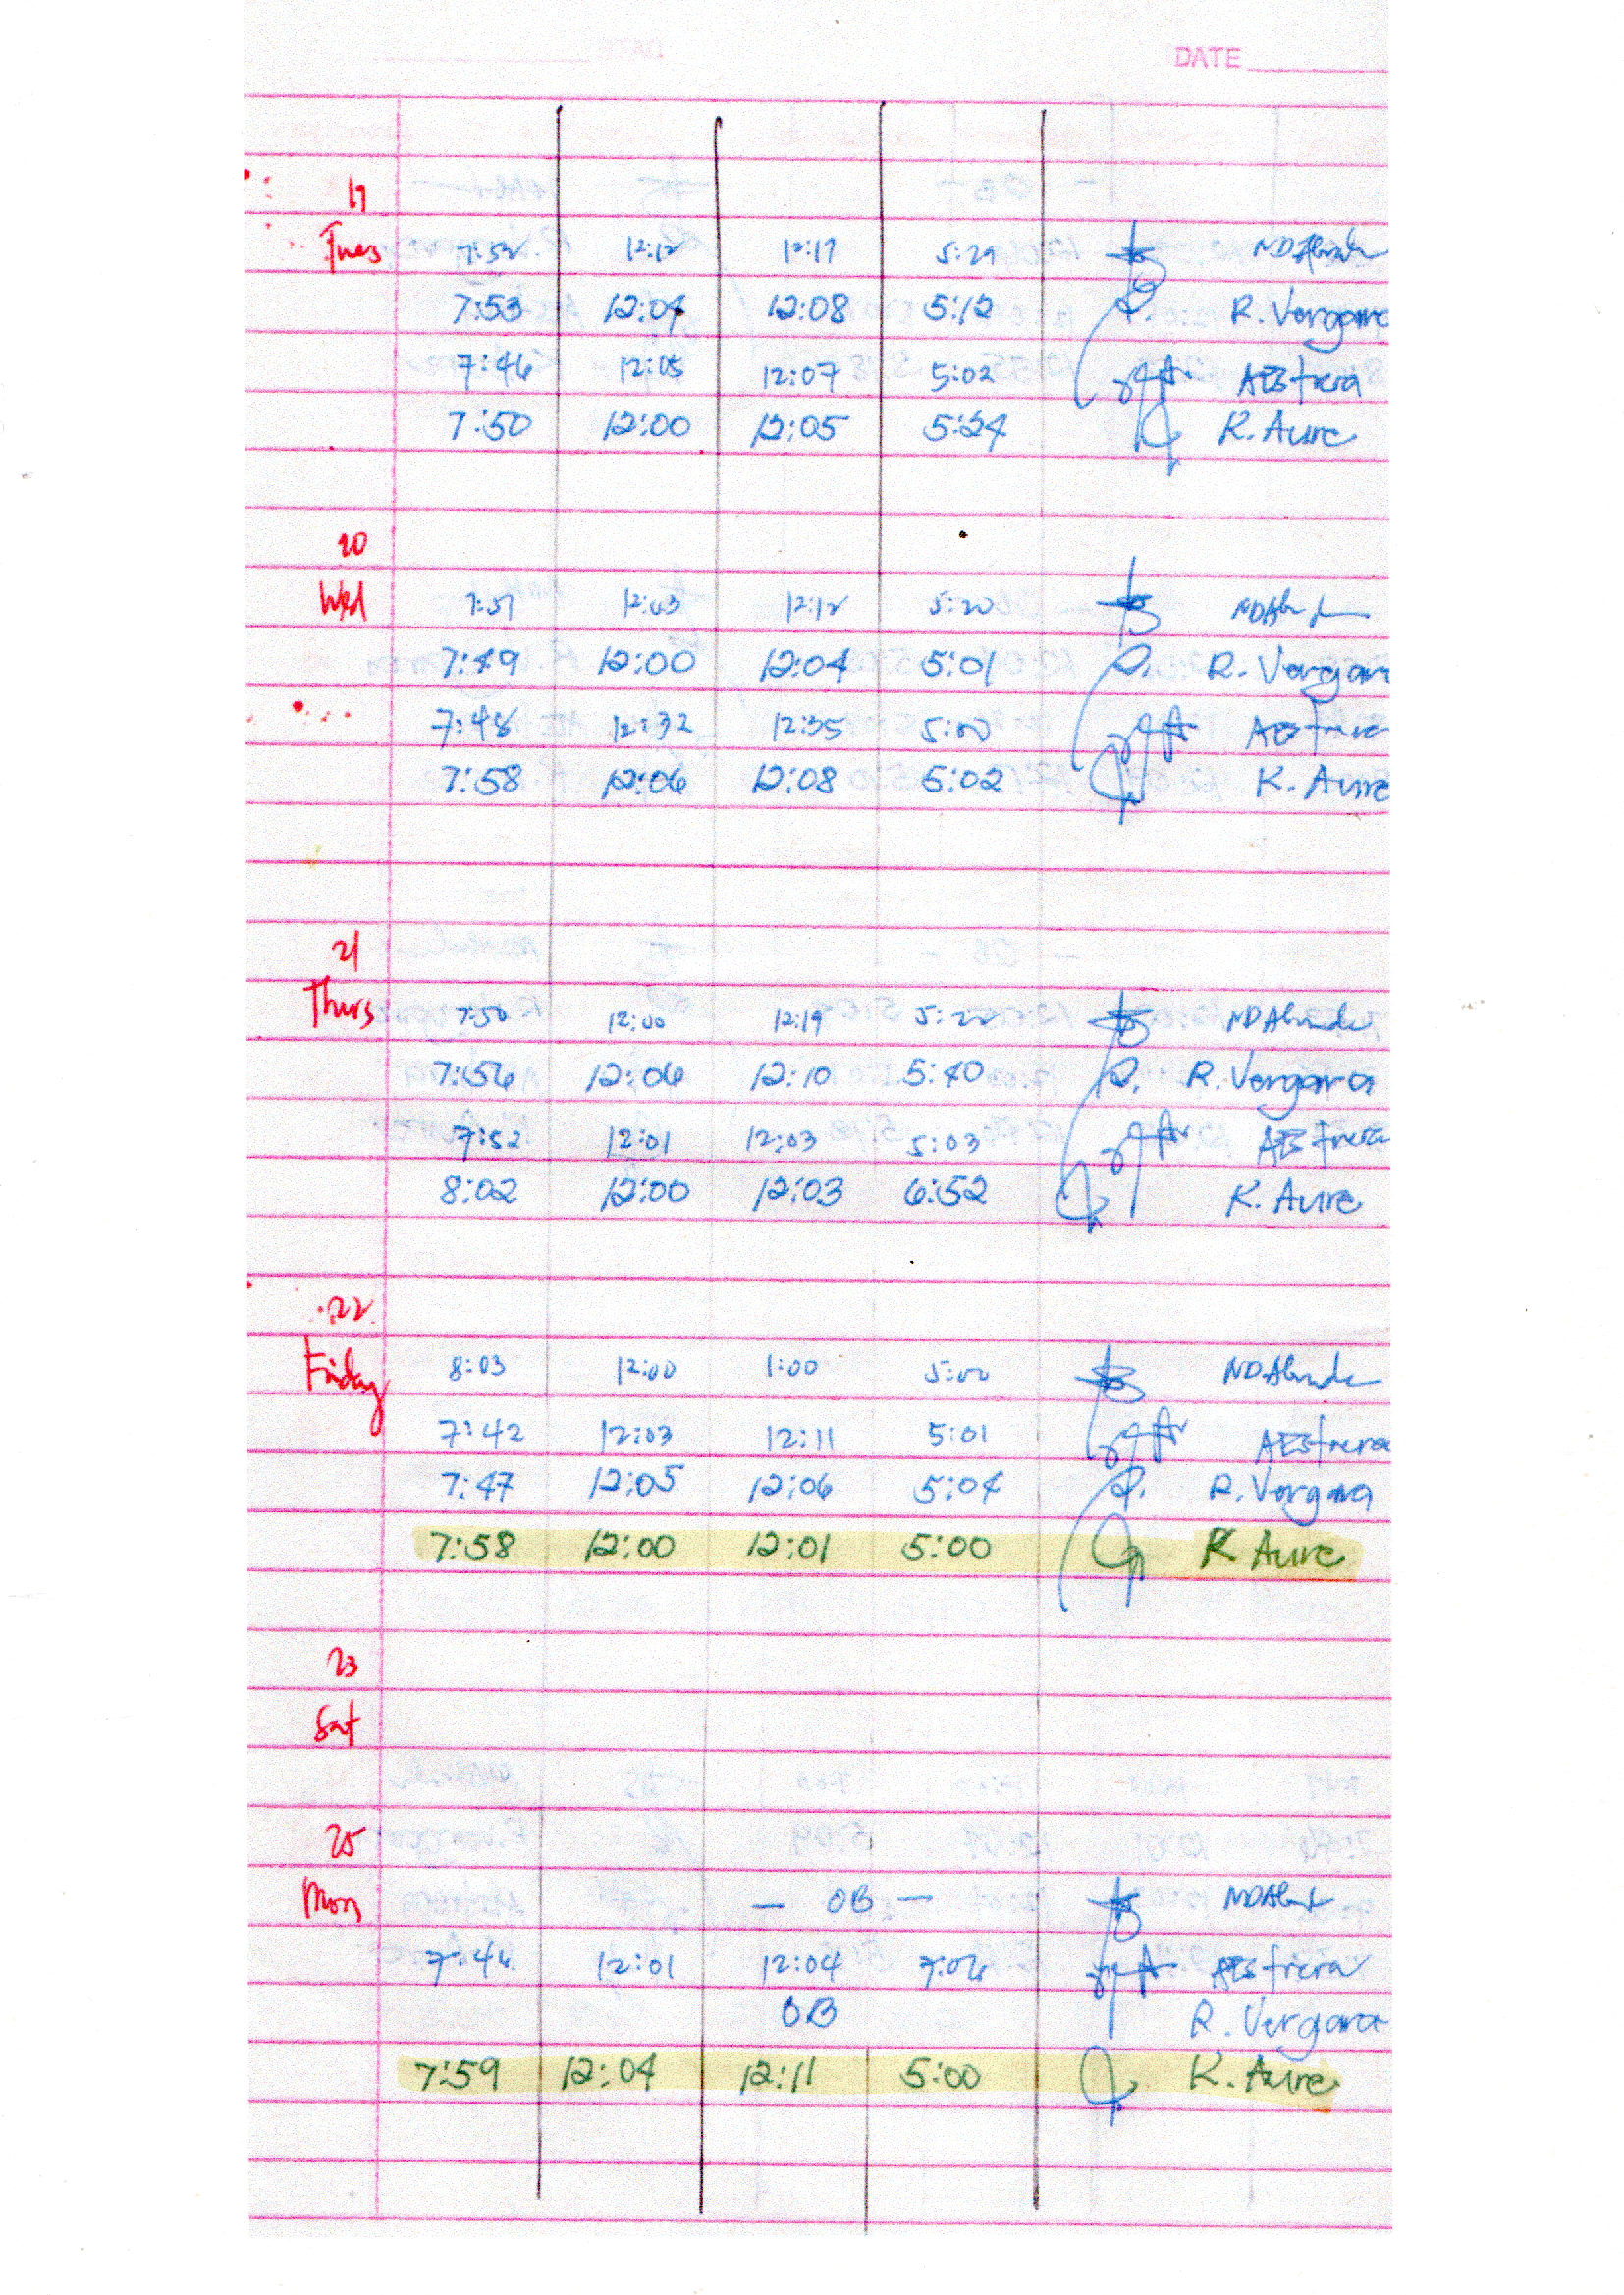 DATE
19
Tues 7:52 12:12 12:17 5:29
7:53 12:04 12:08 5:12 R. Vergara
7:46 12:05 12:07 5:02 AEstrera
7:50 12:00 12:05 5:24 K. Aure
20
Wed 7:51 12:03 12:12 5:20
7:49 12:00 12:04 5:01 R. Vergara
7:48 12:32 12:35 5:00 AEstrera
7:58 12:06 12:08 5:02 K. Aure
21
Thurs 7:50 12:00 12:19 5:22
7:56 12:06 12:10 5:40 R. Vergara
7:52 12:01 12:03 5:03 AEstrera
8:02 12:00 12:03 6:52 K. Aure
22
Friday 8:03 12:00 1:00 5:00
7:42 12:03 12:11 5:01 AEstrera
7:47 12:05 12:06 5:04 R. Vergara
7:58 12:00 12:01 5:00 K Aure
23
Sat
25
Mon — OB —
7:46 12:01 12:04 7:06 AEstrera
OB R. Vergara
7:59 12:04 12:11 5:00 K. Aure